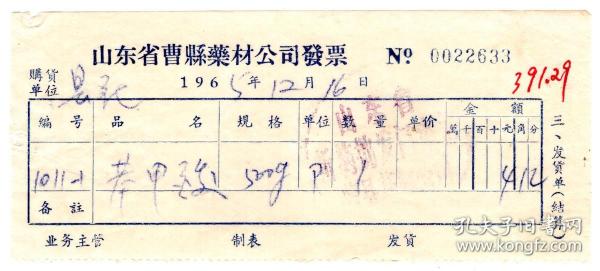 山东省曹縣藥材公司發票 Nº 0022633
購貨单位 1965年12月16日 391.29
編号 品名 規格 单位 数量 单价 金額
萬千百十元角分
1011-1 苯甲酸 500g 1 412
备註
业务主管 制表 发貨
三、发貨单(結算)
孔夫子旧书网
kongfz.com